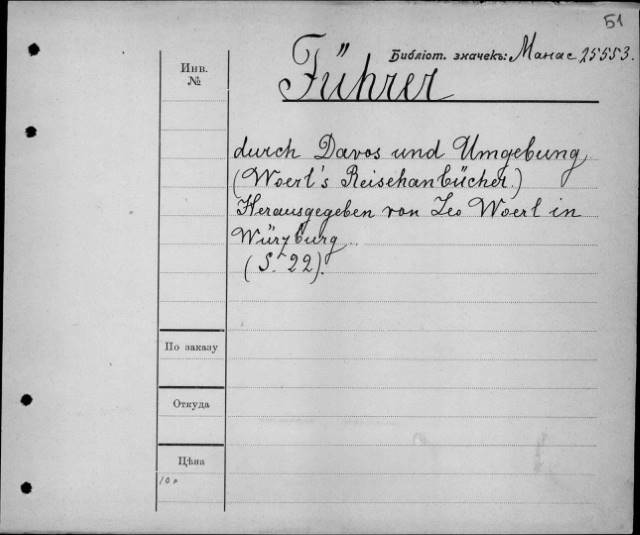 Б1
Библіот. значекъ: Манас 25553.
Инв.
№
Führer
durch Davos und Umgebung
(Woerl's Reisehanbücher.)
Herausgegeben von Leo Woerl in
Würzburg.
(S. 22).
По заказу
Откуда
Цѣна